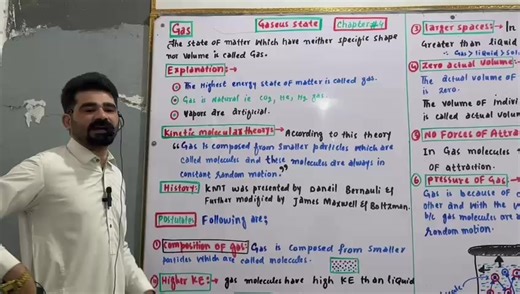 Gas
Gaseus state
Chapter#4
The state of matter which have neither specific shape
nor volume is called Gas.
Explanation →
① The highest energy state of matter is called gas.
② Gas is natural ie CO2, He, H2 gas.
③ Vapors are artificial.
Kinetic molecular theory: → According to this theory
"Gas is composed from smaller particles which are
called molecules and these molecules are always in
constant random motion."
History: KMT was presented by Daneil Bernauli &
Further modified by James Maxwell & Boltzman.
Postulates Following are;
① Composition of gas: Gas is composed from smaller
particles which are called molecules.
② Higher KE: → gas molecules have high KE than liquid
③ larger spaces: In
Greater than liquid
∴ Gas > liquid > sol
④ Zero actual volume:
The actual volume of
is zero.
The volume of indivi
is called actual volum
⑤ No Forces of Attra
In Gas molecules
of attraction.
⑥ pressure of Gas:
Gas is because of c
other and with the w
b/c gas molecules are a
random motion.